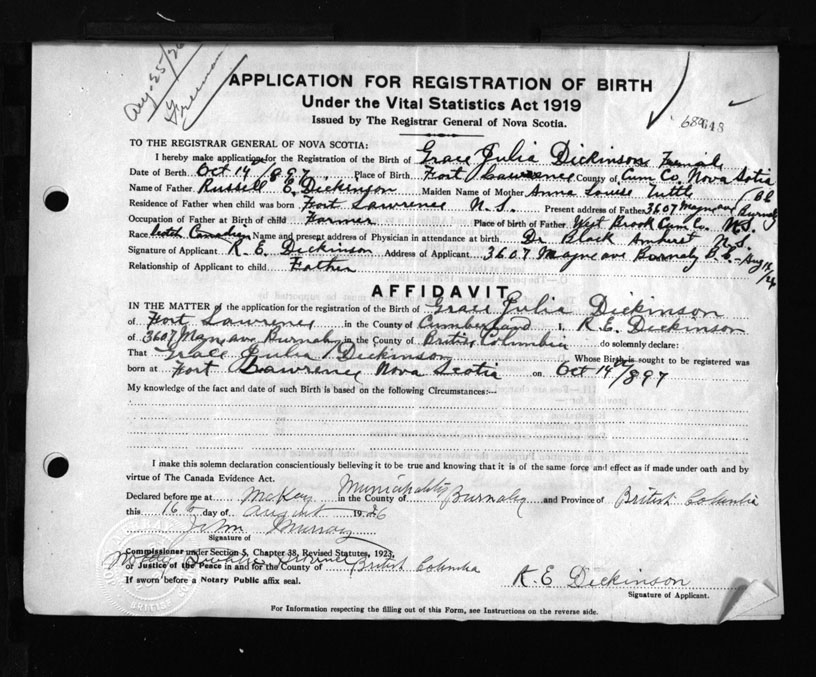 Aug. 25/26
Freeman
APPLICATION FOR REGISTRATION OF BIRTH
Under the Vital Statistics Act 1919
Issued by The Registrar General of Nova Scotia.
TO THE REGISTRAR GENERAL OF NOVA SCOTIA:
I hereby make application for the Registration of the Birth of Grace Julia Dickinson Female
Date of Birth Oct 14th 1897. Place of Birth Fort Lawrence County of Cum Co. Nova Scotia
Name of Father Russell E. Dickinson Maiden Name of Mother Anna Louise Tuttle
Residence of Father when child was born Fort Lawrence N.S. Present address of Father 3607 Burnaby
Occupation of Father at Birth of child Farmer Place of Birth of Father West Brook Cum Co. N.S.
Race Scotch Canadian Name and present address of Physician in attendance at birth Dr. Black Amherst N.S.
Signature of Applicant R. E. Dickinson Address of Applicant 3607 ave Burnaby B.C. Aug 16/26
Relationship of Applicant to child Father
AFFIDAVIT
IN THE MATTER of the application for the registration of the Birth of Grace Julia Dickinson
of Fort Lawrence in the County of Cumberland I, R. E. Dickinson
of 3607 ave Burnaby in the County of British Columbia do solemnly declare:
That Grace Julia Dickinson Whose Birth is sought to be registered was
born at Fort Lawrence Nova Scotia on Oct 14th 1897
My knowledge of the fact and date of such Birth is based on the following Circumstances:—
I make this solemn declaration conscientiously believing it to be true and knowing that it is of the same force and effect as if made under oath and by
virtue of The Canada Evidence Act.
Declared before me at McKay Municipality in the County of Burnaby and Province of British Columbia
this 16th day of August 1926
John Murray
Signature of
Commissioner under Section 5, Chapter 38, Revised Statutes, 1923,
or Justice of the Peace in and for the County of British Columbia
If sworn before a Notary Public affix seal.
R. E. Dickinson
Signature of Applicant.
For Information respecting the filling out of this Form, see Instructions on the reverse side.